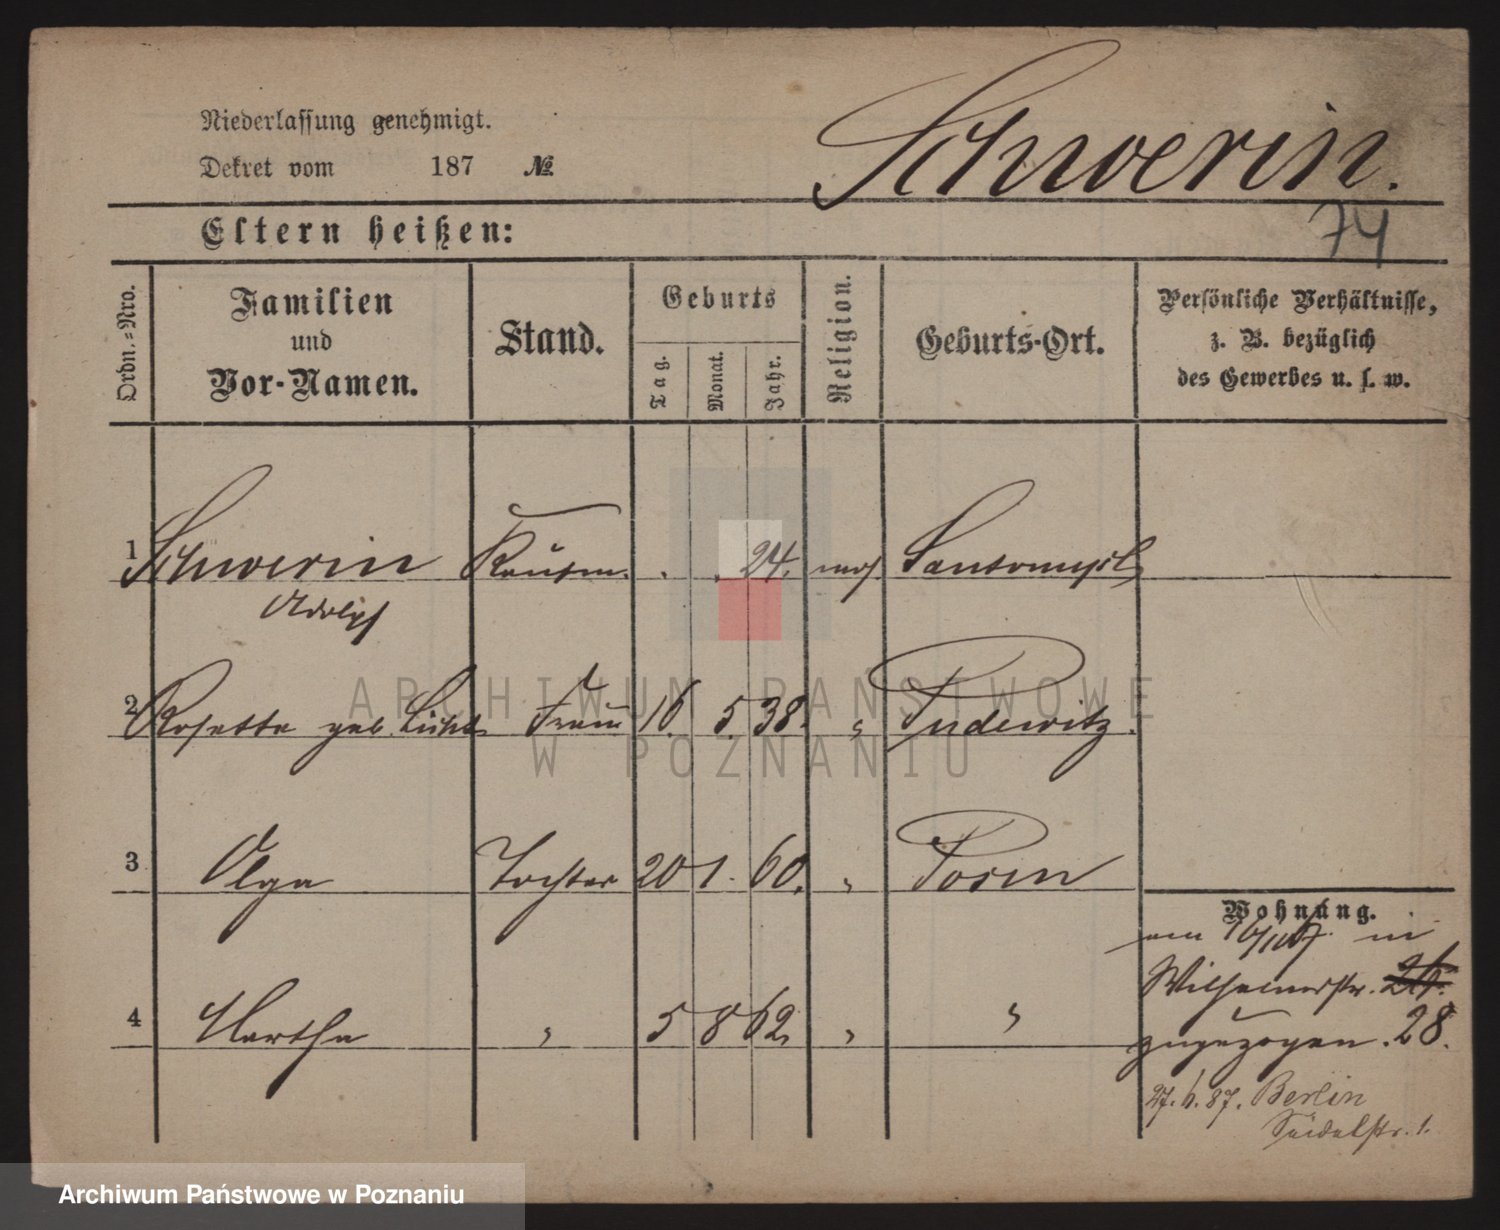 Niederlassung genehmigt.
Dekret vom 187 №
Schwerin.
74
Eltern heißen:
Ordn.-Nro.
Familien
und
Vor-Namen.
Stand.
Geburts
Tag.
Monat.
Jahr.
Religion.
Geburts-Ort.
Persönliche Verhältnisse,
z. B. bezüglich
des Gewerbes u. s. w.
1 Schwerin Kaufm. . . 24. mos. Santomysl
Adolph
2 Rosette geb. Frau 16. 5. 38. " Pudewitz.
3 Olga Tochter 20 1. 60. " Posen
4 Martha " 5 8 62 " "
Wohnung.
am in
Wilhelmstr. 26.
zugezogen. 28.
27. 6. 87. Berlin
Seidelstr. 1.
ARCHIWUM PAŃSTWOWE
W POZNANIU
Archiwum Państwowe w Poznaniu